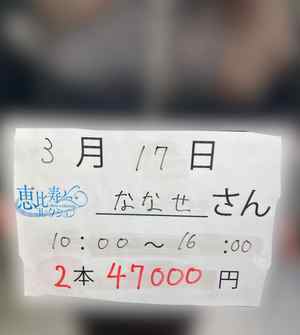 3月17日
恵比寿
ななせさん
10:00～16:00
2本 47000円